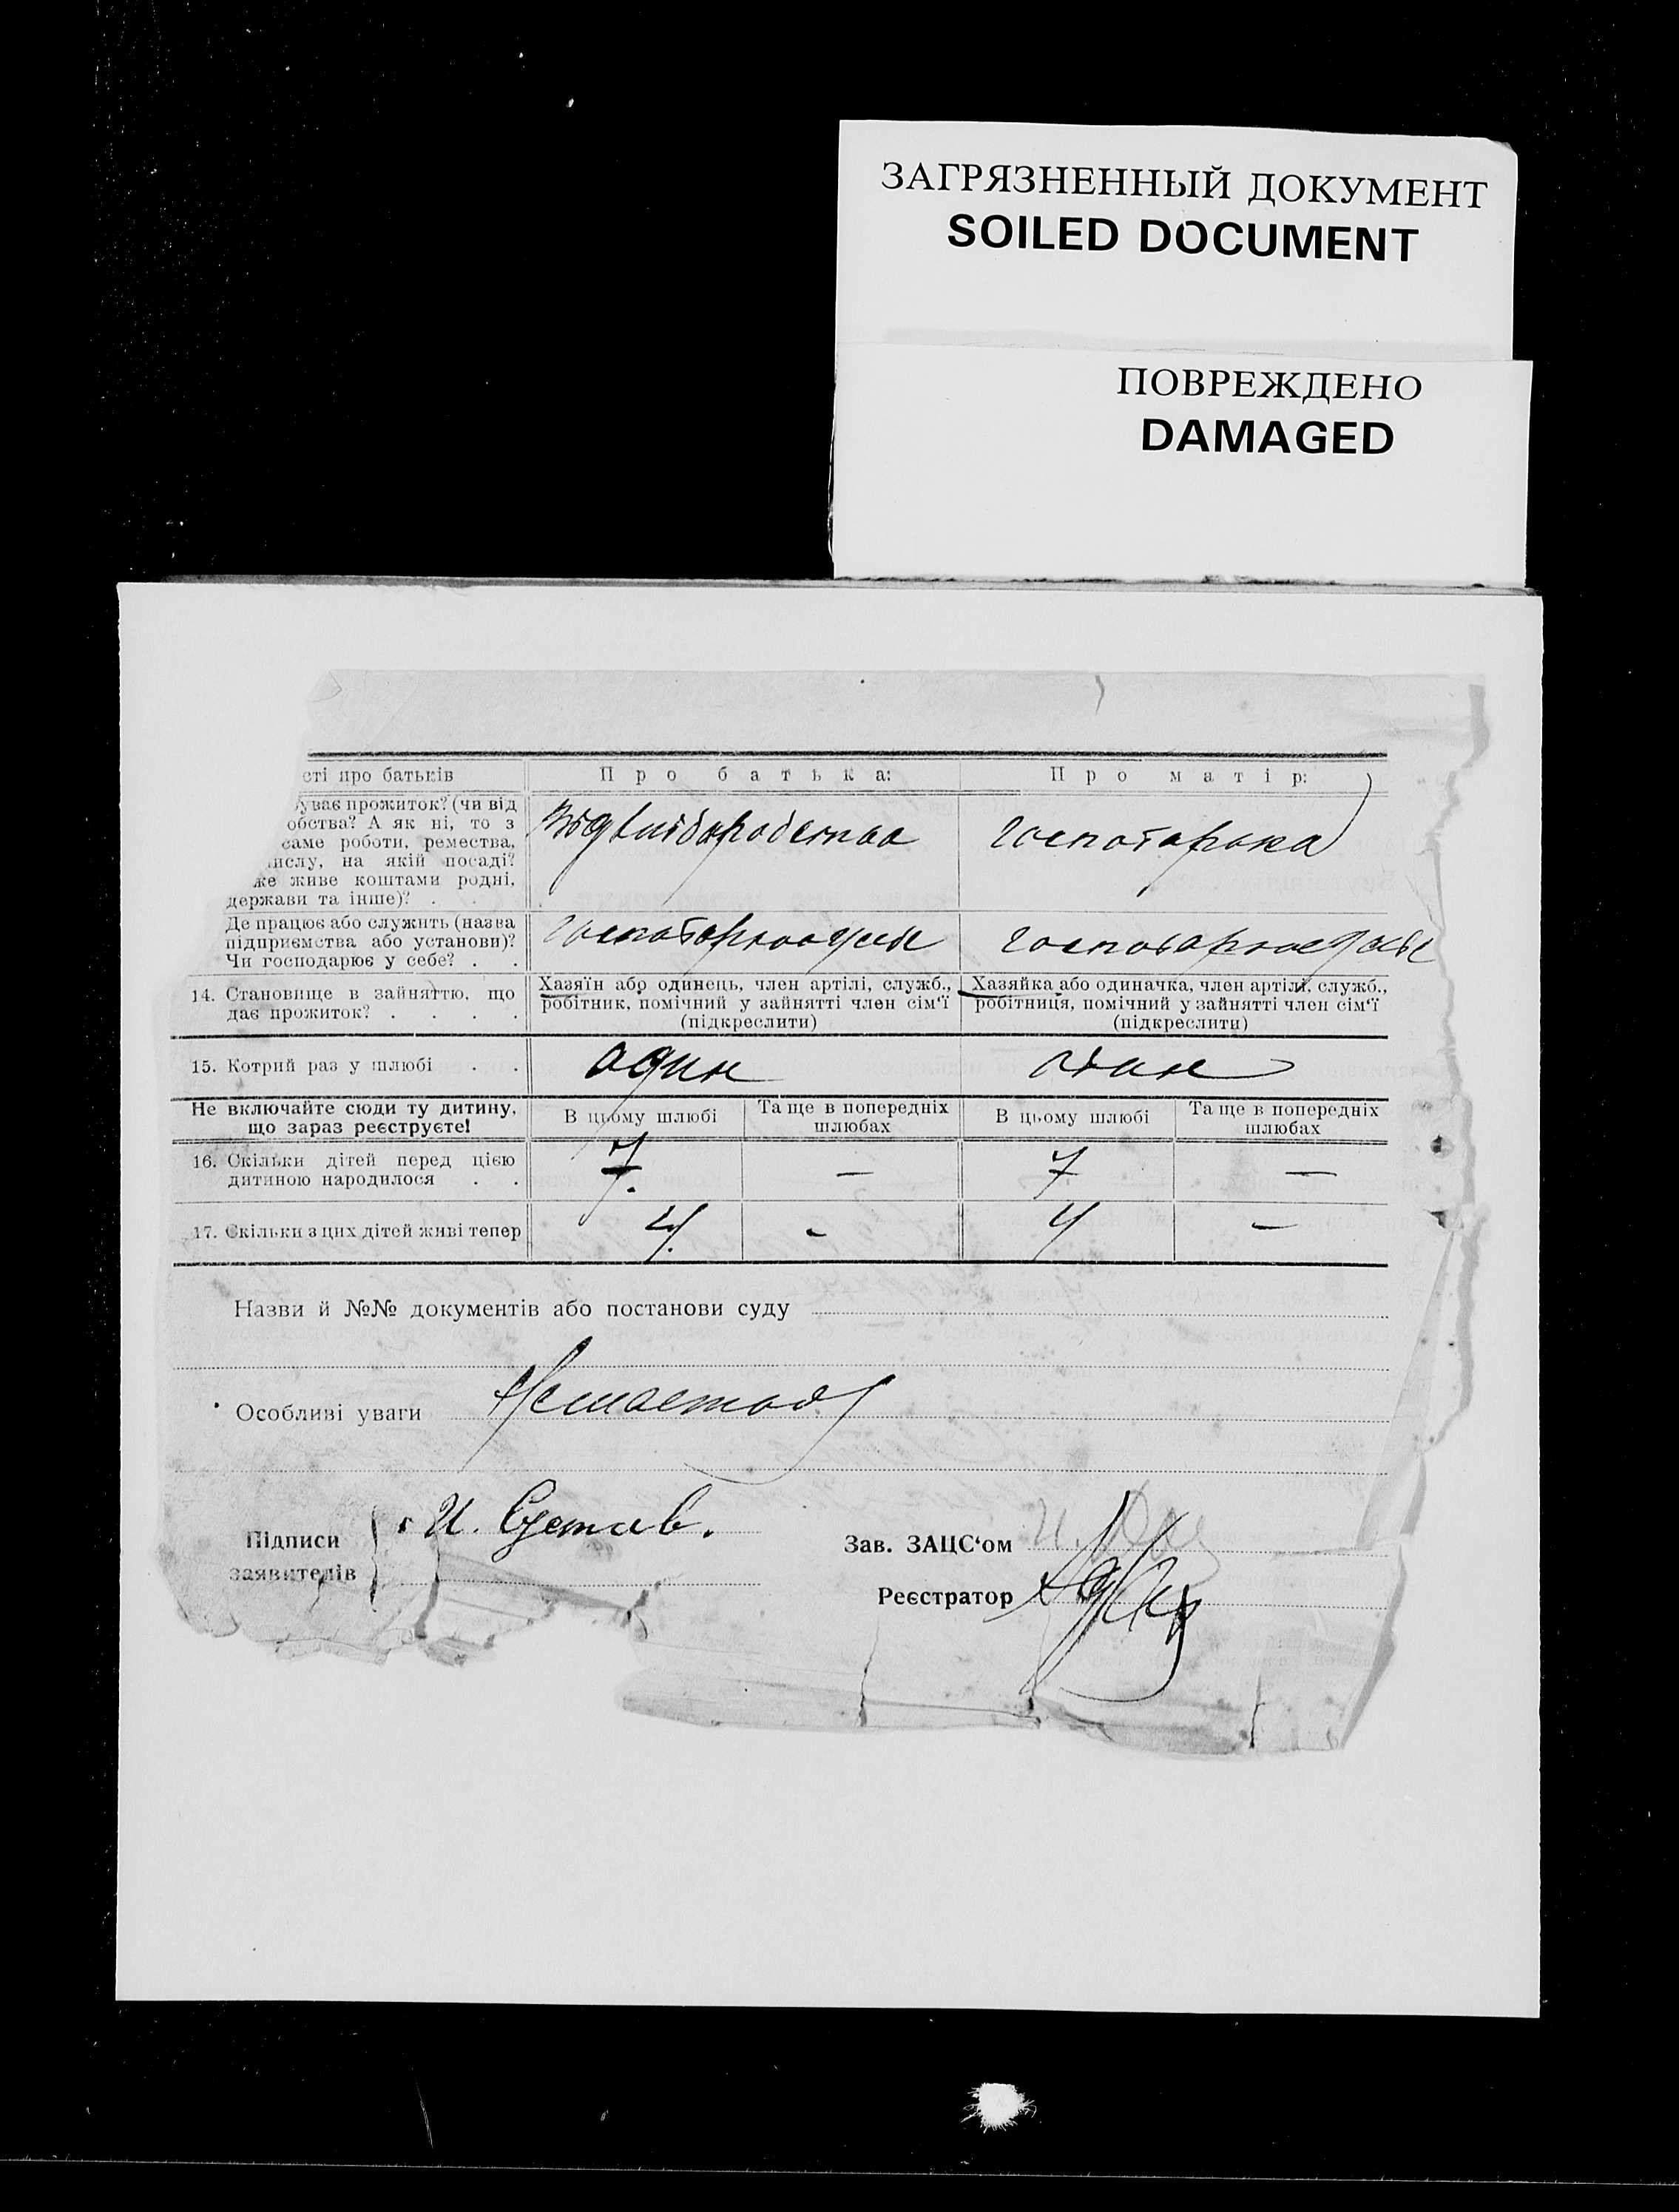 ЗАГРЯЗНЕННЫЙ ДОКУМЕНТ
SOILED DOCUMENT
ПОВРЕЖДЕНО
DAMAGED
сті про батьків
Про батька:
Про матір:
ував прожиток? (чи від
обства? А як ні, то з
саме роботи, ремества,
ислу, на якій посаді?
же живе коштами родні,
держави та інше)? .
Де працює або служить (назва
підприємства або установи)?
Чи господарює у себе? . .
14. Становище в зайняттю, що
дає прожиток? . . . .
Хазяїн або одинець, член артілі, служб.,
робітник, помічний у зайнятті член сім‘ї
(підкреслити)
Хазяйка або одиначка, член артілі, служб.,
робітниця, помічний у зайнятті член сім‘ї
(підкреслити)
15. Котрий раз у шлюбі . .
один
Не включайте сюди ту дитину,
що зараз реєструєте!
В цьому шлюбі
Та ще в попередніх
шлюбах
В цьому шлюбі
Та ще в попередніх
шлюбах
16. Скільки дітей перед цією
дитиною народилося . .
7.
—
7
—
17. Скільки з цих дітей живі тепер
4.
-
4
—
Назви й №№ документів або постанови суду
Особливі уваги
Підписи
заявителів
И.
Зав. ЗАЦС‘ом
Реєстратор